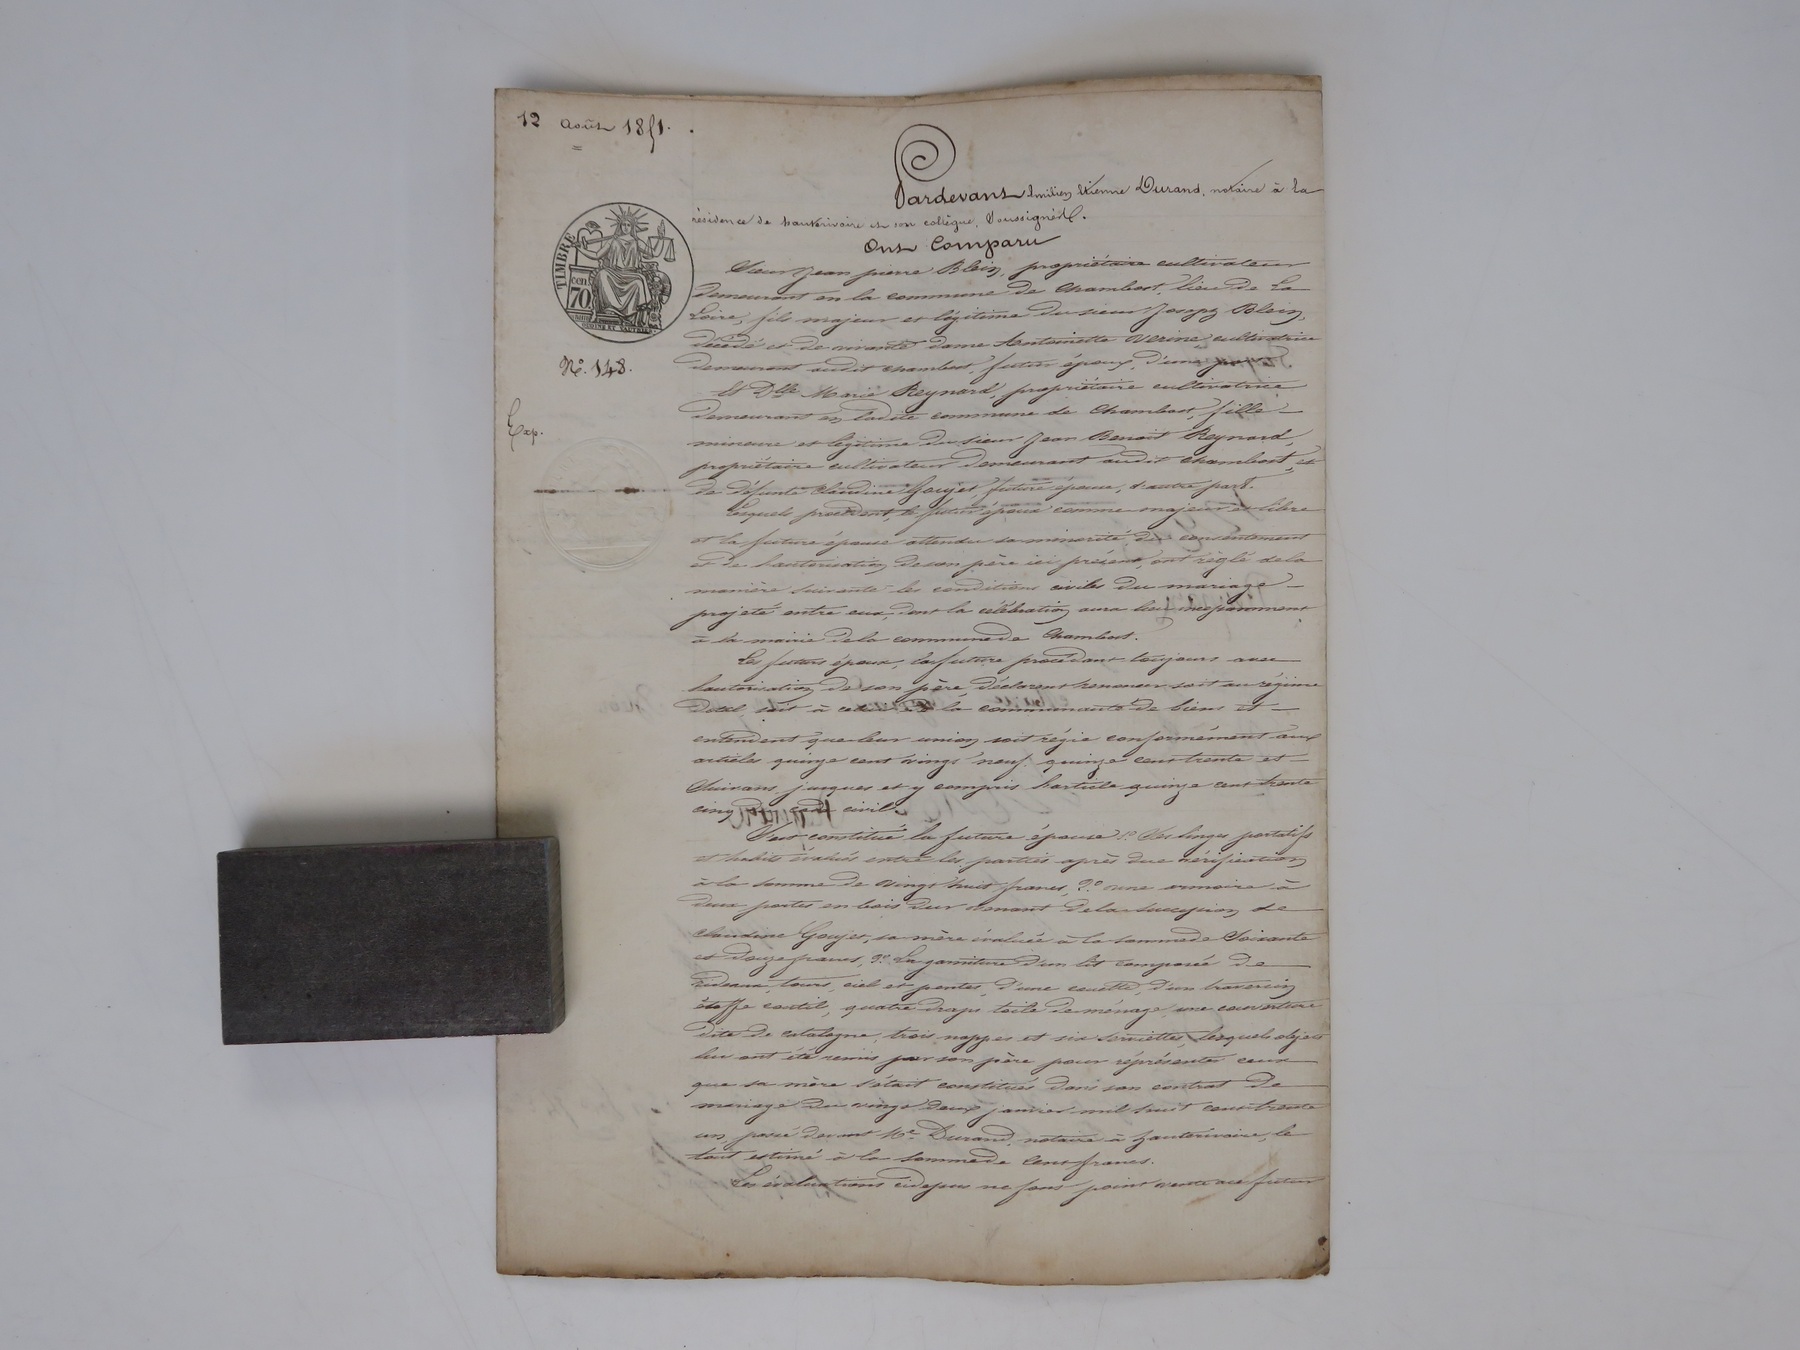 12 août 1851.
Pardevant Emilien Etienne Durand, notaire à la
résidence de hauterivoire et son collègue, Soussignés.
Ont Comparu
TIMBRE
70
Nº. 148.
Exp.
Sieur Jean pierre Blein, propriétaire cultivateur
demeurant en la commune de Chambost, lieu de La
Loire, fils majeur et légitime du sieur Joseph Blein,
décédé et de vivante dame Antoinette Verine cultivatrice
demeurant audit chambost, futur époux, d'une part
Et Dlle Marie Reynard, propriétaire cultivatrice
demeurant en ladite commune de Chambost, fille
mineure et légitime du sieur Jean Benoit Reynard,
propriétaire cultivateur demeurant audit chambost, et
de défunte Claudine Goujet, future épouse, d'autre part.
Lesquels procédant, le futur époux comme majeur et libre
et la future épouse attendu sa minorité du consentement
et de l'autorisation de son père ici présent, ont réglé de la
manière suivante les conditions civiles du mariage
projeté entre eux, dont la célébration aura lieu incessamment
à la mairie de la commune de Chambost.
Les futurs époux, la future procédant toujours avec
l'autorisation de son père, déclarent renoncer soit au régime
dotal soit à celui de la communauté de biens et
entendent que leur union soit régie conformément aux
articles quinze cent vingt neuf, quinze cent trente et
Suivans jusques et y compris l'article quinze cent trente
cinq du code civil.
S'est constitué la future épouse 1º Ses linges portatifs
et habits évalués entre les parties après due vérification
à la somme de vingt huit francs, 2º une armoire à
deux portes en bois dur venant de la succession de
claudine Goujet, sa mère évaluée à la somme de Soixante
et douze francs, 3º La garniture d'un lit composée de
rideaux, tours, ciel et pentes, d'une couette, d'un traversin
étoffe coutil, quatre draps toile de ménage, une couverture
dite de catalogne, trois nappes et six serviettes, lesquels objets
lui ont été remis par son père pour réprésenter ceux
que sa mère s'était constitués dans son contrat de
mariage du vingt deux janvier mil huit cent trente
un, passé devant Me Durand, notaire à hauterivoire, le
tout estimé à la somme de Cent francs.
Les évaluations cidessus ne font point vente au futur